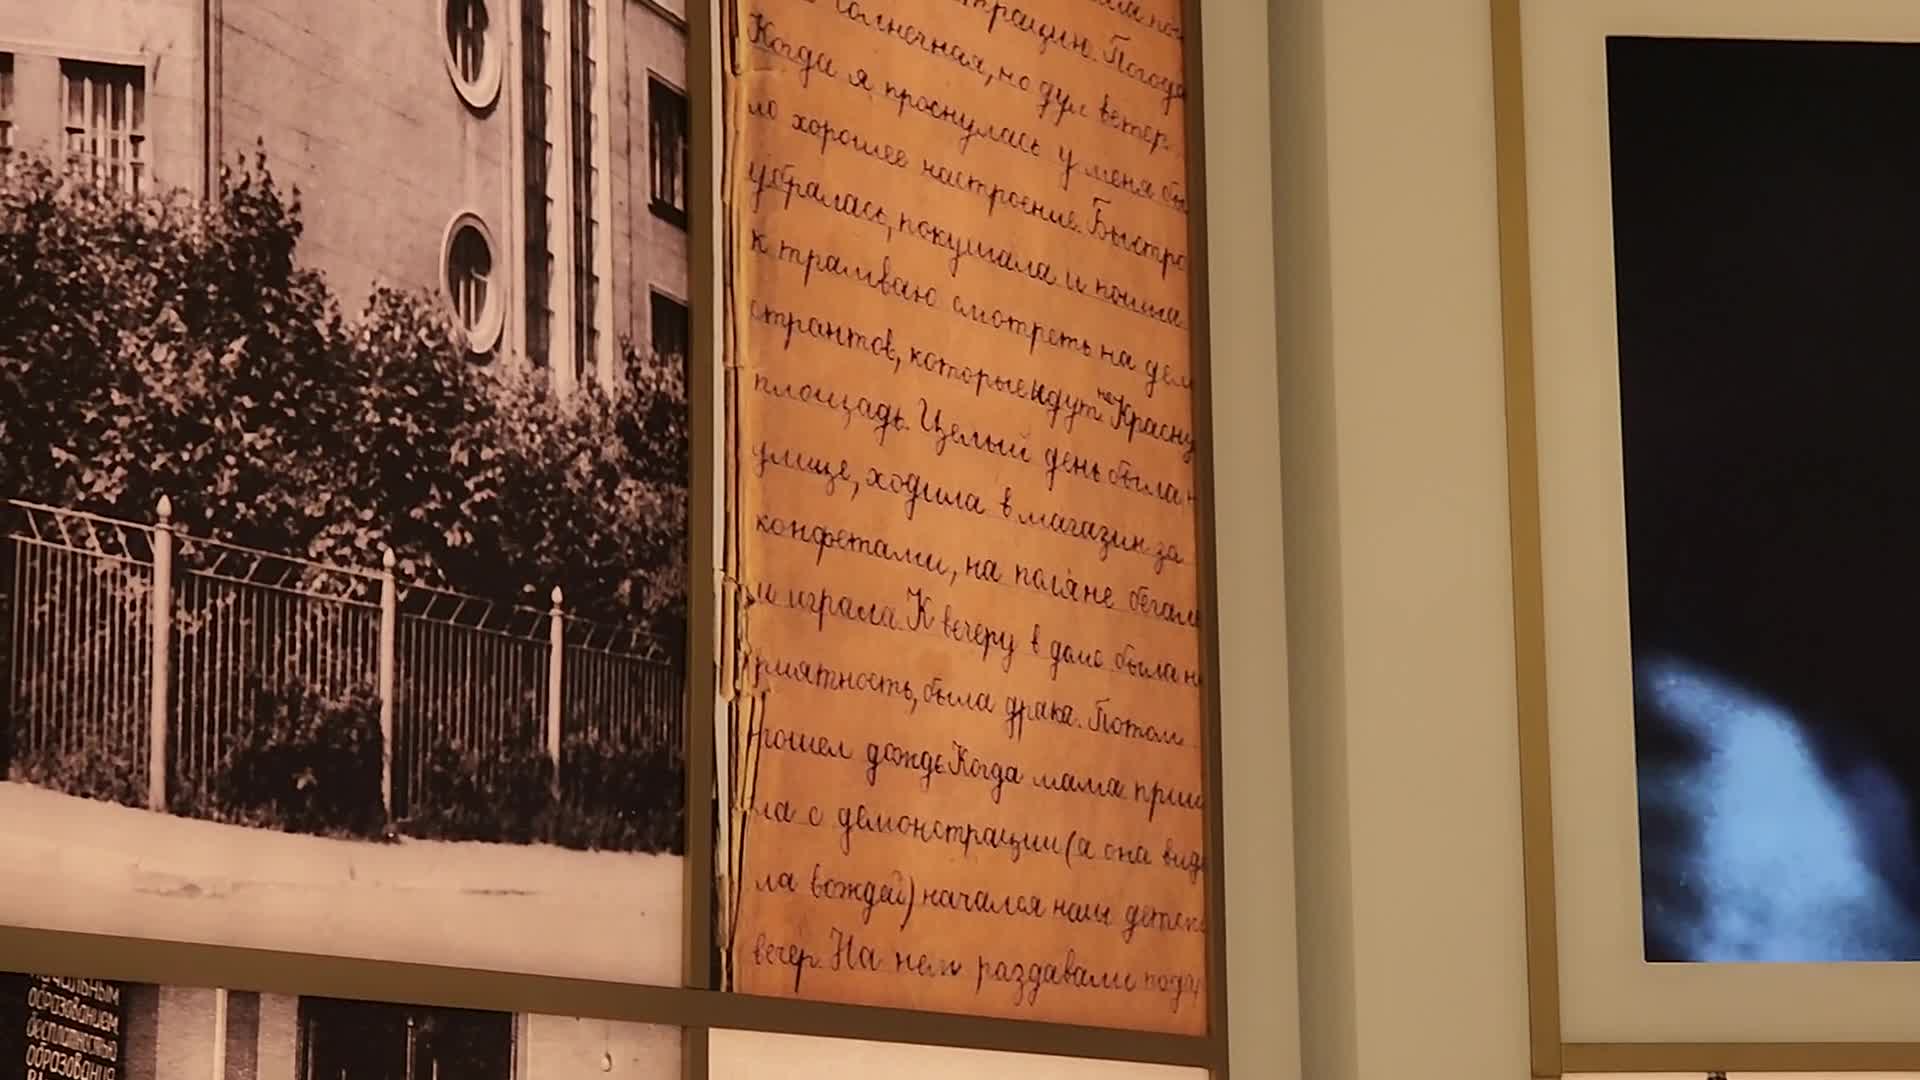 трации. Погода
солнечная, но дул ветер.
Когда я проснулась у меня бы
ло хорошее настроение. Быстро
убралась, покушала и пошла
к трамваю смотреть на дем
странтов, которые идут на Красну
площадь. Целый день была н
улице, ходила в магазин за
конфетами, на поляне бегала
и играла. К вечеру в доме была н
приятность, была драка. Потом
прошел дождь. Когда мама приш
ла с демонстрации (а она виде
ла вождей) начался наш детск
вечер. На нем раздавали подар
образованием,
бесплатностью
образования